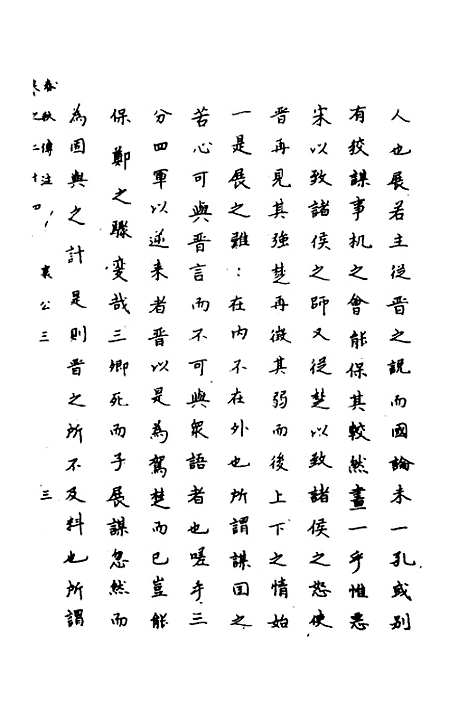 人也展若主從晉之說而國論未一孔或別
有狡謀事机之會能保其較然畫一乎惟惡
宋以致諸侯之師又從楚以致諸侯之怒使
晋再見其強楚再微其弱而後上下之情始
一是展之雖：在内不在外也所謂謀回之
苦心可與晋言而不可與衆語者也嗟乎三
分四軍以逆来者晋以是為駕楚而已豈能
保鄭之驟變哉三卿死而子展謀忽然而
為固與之計是則晋之所不及料也所謂
春秋傳注 襄公三 三
卷之二十四